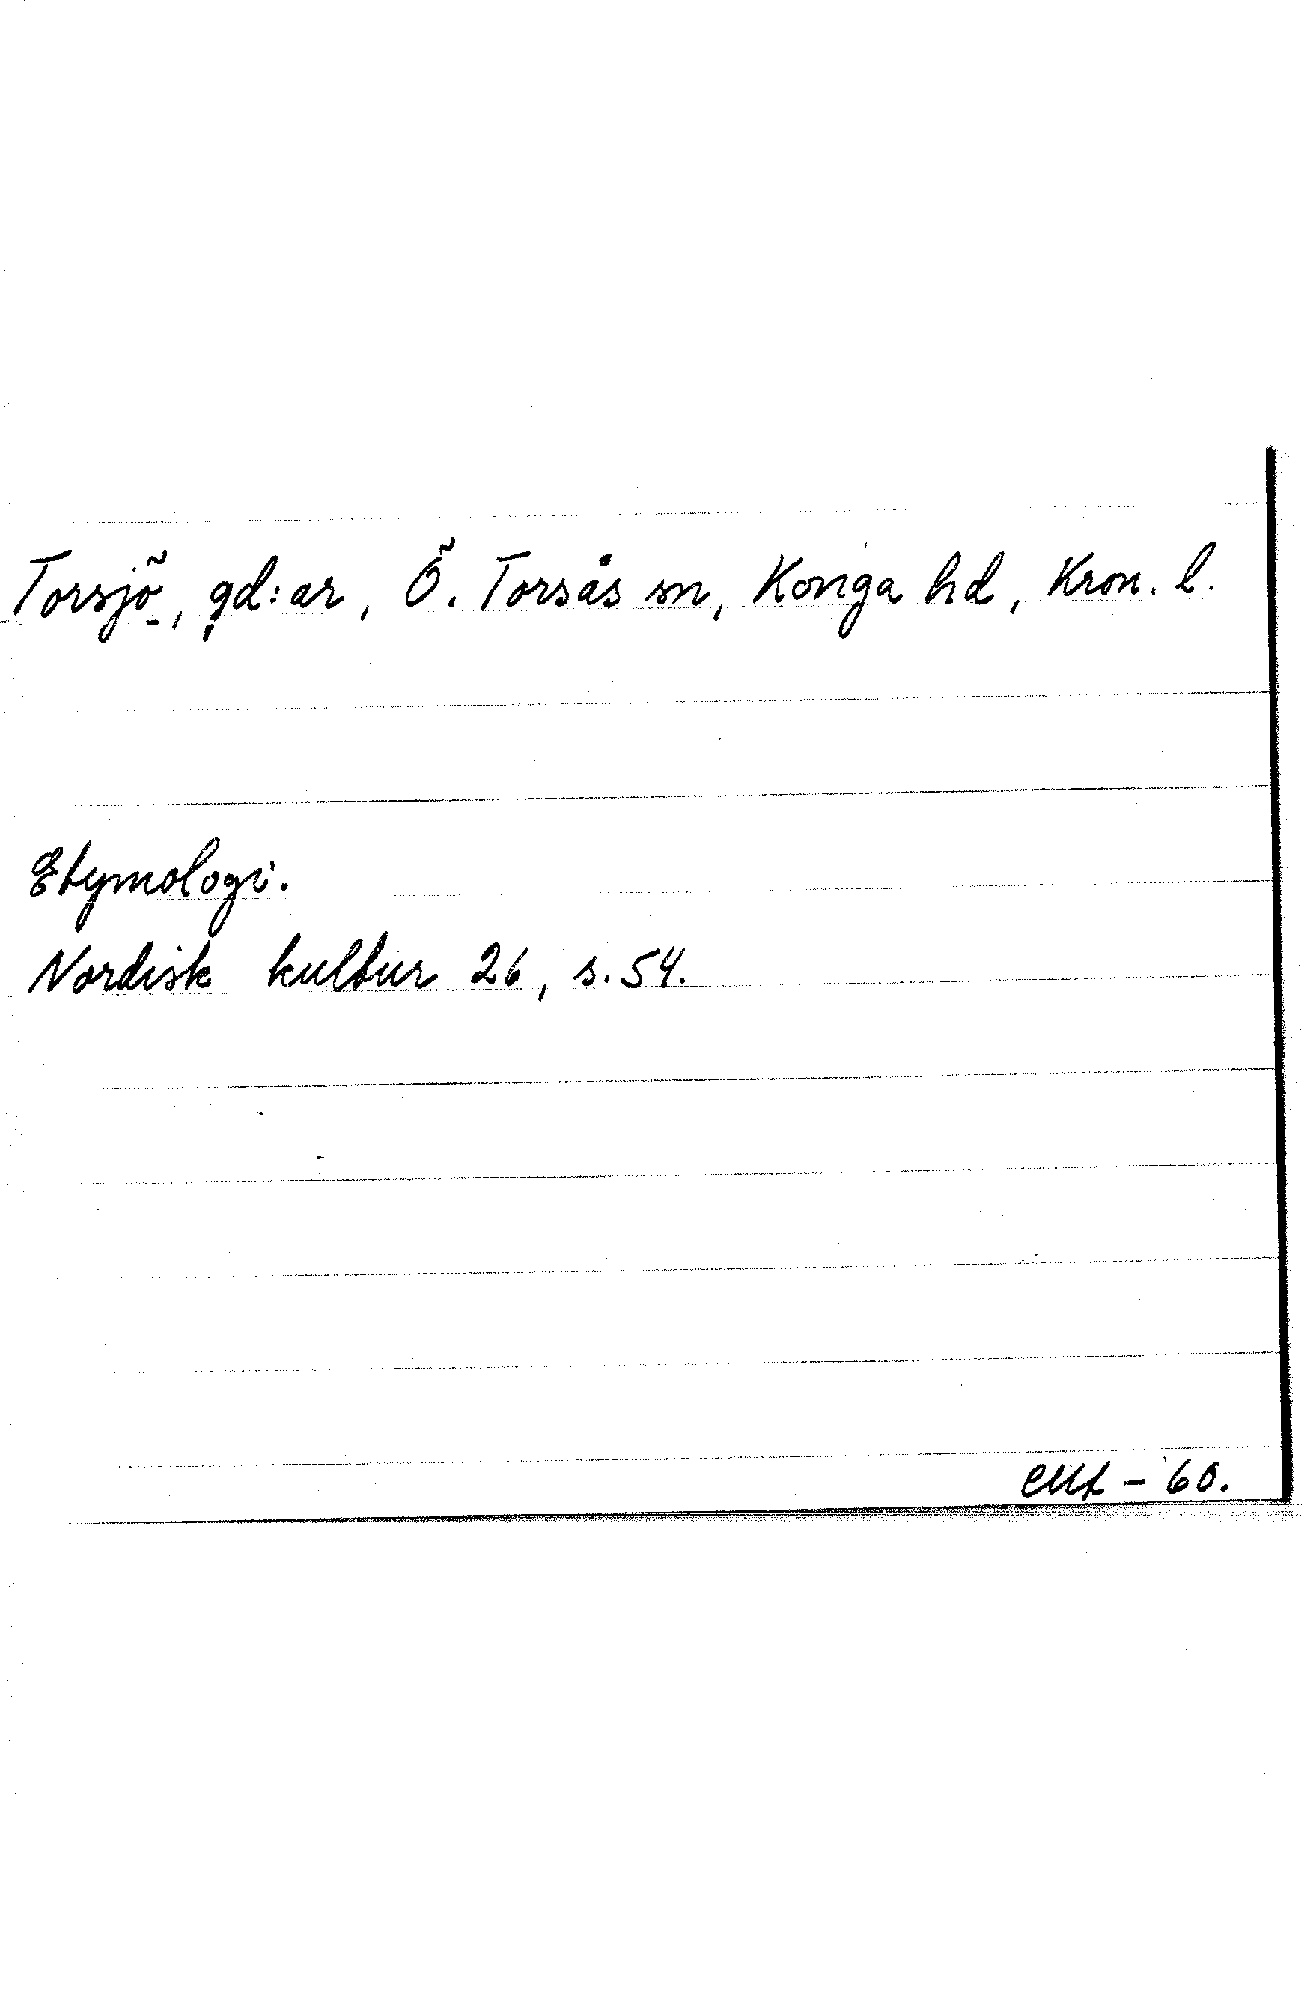 Torsjö, gd:ar, Ö. Torsås sn, Konga hd, Kron. l.
Etymologi.
Nordisk kultur 26, s. 54.
- 60.